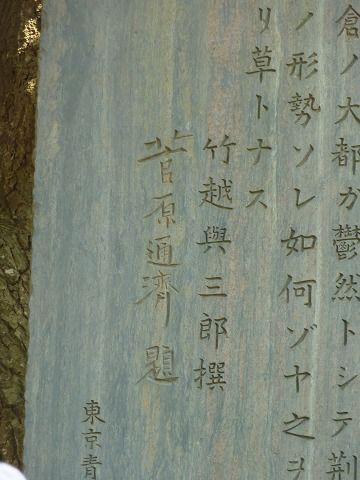 倉ノ大都ガ鬱然トシテ荆
ノ形勢ソレ如何ゾヤ之ヲ
リ草トナス
竹越與三郎撰
菅原通濟題
東京青